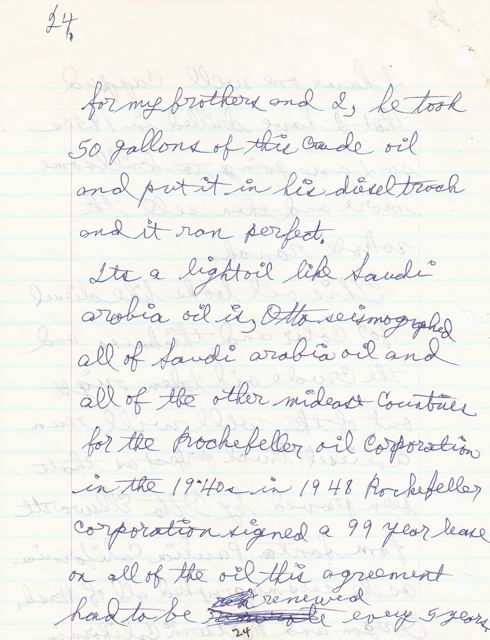 24
for my brothers and I, he took
50 gallons of this Crude oil
and put it in his diesel truck
and it ran perfect.
Its a light oil like Saudi
arabia oil is, Otto seismographed
all of Saudi arabia oil and
all of the other mideast Countries
for the Rockefeller oil Corporation
in the 1940s in 1948 Rockefeller
Corporation signed a 99 year lease
on all of the oil this agreement
had to be renewed every 5 years
24